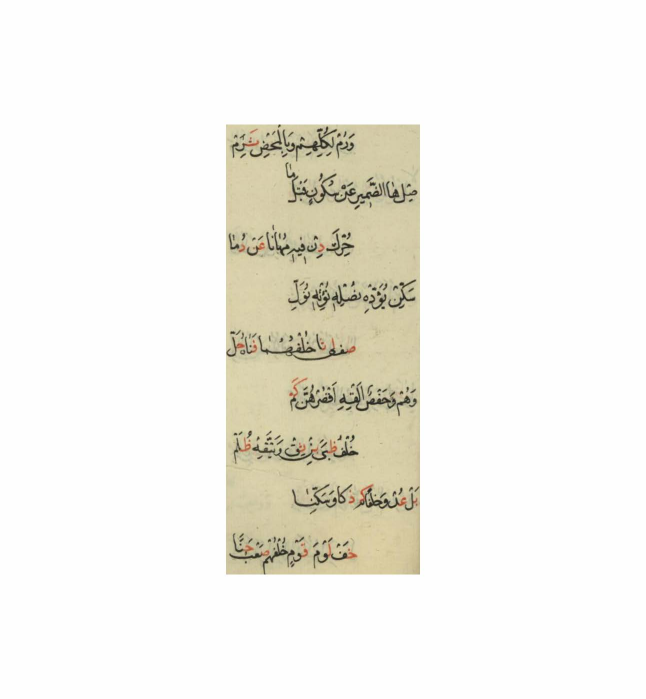 وَرُمْ لِكُلِّهِمْ وَبِالْمَحْضِ بَرِمْ
صِلْ هَا الضَّمِيرِ عَنْ سُكُونٍ قَبْلَ مَا
حُرِّكَ دِنْ فِيهِ مُهَانًا عَنْ دُمَا
سَكِّنْ يُؤَدِّهْ نُصْلِهِ نُؤْتِهْ نُوَلِّ
صف لى ثنا خلفهما فناه حل
وَهُمْ وَحَفْصٌ أَلْقِهِ اقْصُرْهُنَّ كَمْ
خُلْفٌ ظُبًى بِنْ ثِقْ وَيَتَّقِهْ ظُلَمْ
بَلْ عُدْ وَخُلْفًا كَمْ ذَكَا وَسَكِّنَا
خَفْ لَوْمَ قَوْمٍ خُلْفُهُمْ صَعْبٌ حَنَا